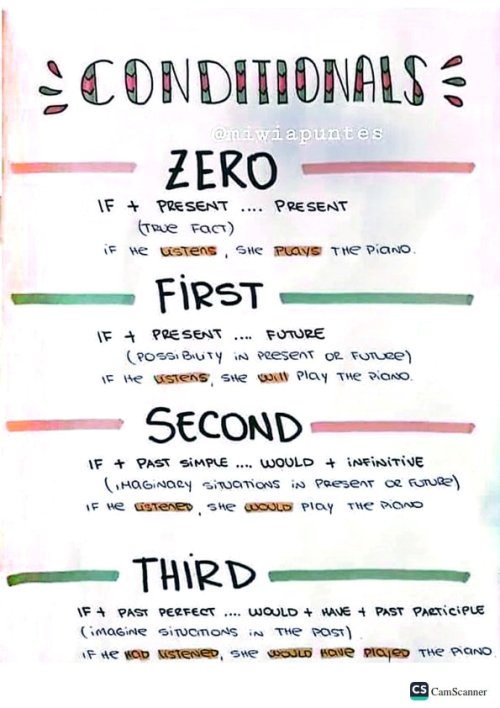 CONDITIONALS
@miwiapuntes
ZERO
IF + PRESENT .... PRESENT
(TRUE FACT)
iF HE LISTENS, SHE PLAYS THE PIANO.
FIRST
IF + PRESENT .... FUTURE
(POSSIBILITY IN PRESENT OR FUTURE)
IF HE LISTENS, SHE WILL PLAY THE PIANO.
SECOND
IF + PAST SIMPLE .... WOULD + INFINITIVE
(IMAGINARY SITUATIONS IN PRESENT OR FUTURE)
IF HE LISTENED, SHE WOULD PLAY THE PIANO
THIRD
IF + PAST PERFECT .... WOULD + HAVE + PAST PARTICIPLE
(IMAGINE SITUATIONS IN THE PAST)
IF HE HAD LISTENED, SHE WOULD HAVE PLAYED THE PIANO.
CS CamScanner